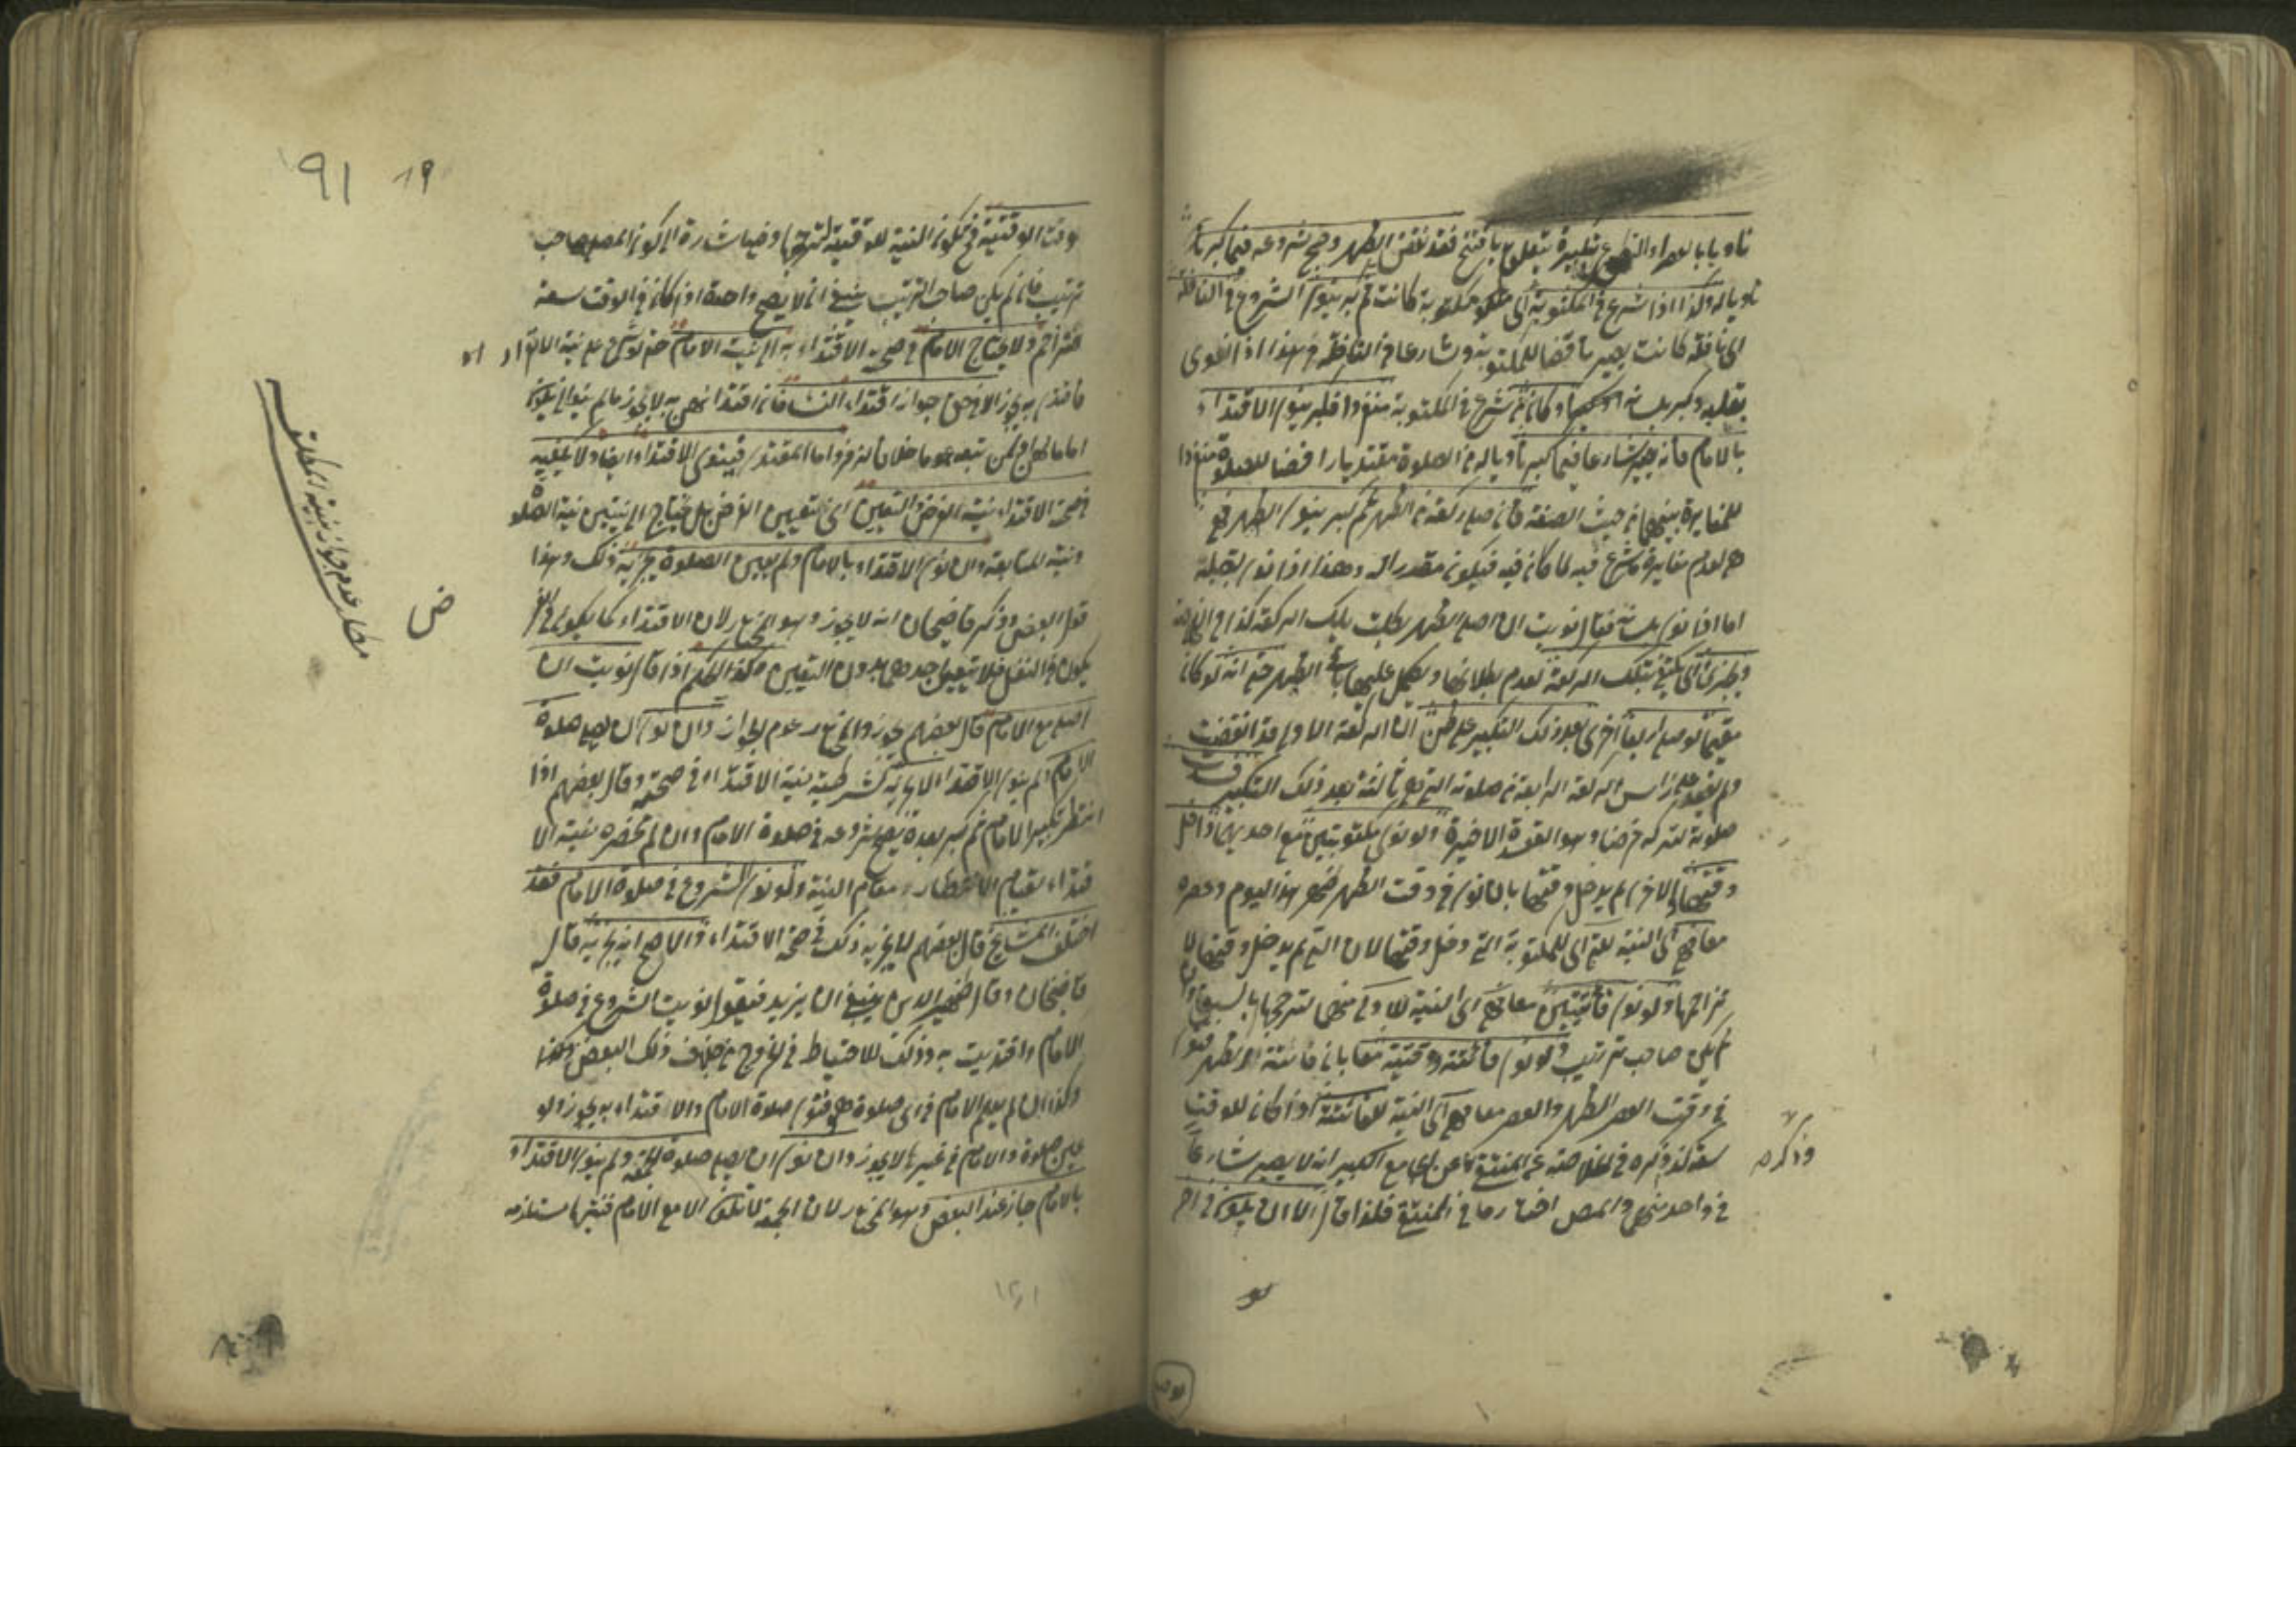 ناويا بالعصر او التطوع بتكبيرة يتعلق بافتتح فقد نقض الظهر وصح شروعه فيما كبر
ناويا له وكذا اذا شرع في المكتوبة اى مكتوبة كانت ثم كبر ينوى الشروع في النافلة
اى نافلة كانت يصير ناقضا للمكتوبة وشارعا في النافلة وهذا اذا نوى
بقلبه وكبر بلسانه وكان شرع في المكتوبة منفردا فكبر ينوى الاقتداء
بالامام فانه يصير شارعا فيما كبر ناويا له من الصلوة مقتديا رافضا للصلوة منفردا
للمغايرة بينهما من حيث الصفة فان صلى ركعة من الظهر ثم كبر ينوى الظهر فهى
هى لعدم مغايرة ما شرع فيه لما كان فيه فيكون مقدرا له وهذا اذا نوى بقلبه
اما اذا نوى بلسانه فقال نويت ان اصلى الظهر بطلت تلك الركعة كذا في الخلاصة
ويجتزئ اى يكتفى بتلك الركعة لعدم بطلانها ويكمل عليها باقى الظهر حتى انه لو كان
مقيما لو صلى اربعا اخرى بعد ذلك التكبير على ظن ان الركعة الاولى قد انتقضت
ولم يقعد على راس الركعة الرابعة من صلوته التى هى ثالثة بعد ذلك التكبير فسدت
صلوته لتركه فرضا وهو القعدة الاخيرة ولو نوى مكتوبتين مع احديهما داخل
وقتها والاخرى لم يدخل وقتها بان نوى في وقت الظهر ظهر هذا اليوم وعصره
معا فهى اى النية للتى اى للمكتوبة التى دخل وقتها لان التى لم يدخل وقتها لا
تزاحمها ولو نوى فائتتين معا فهى اى النية للاولى منهما لترجحها بالسبق وان
لم يكن صاحب ترتيب ولو نوى فائتة ووقتية معا بان فاتته الظهر فنوى
في وقت العصر الظهر والعصر معا فهى اى النية للفائتة اذا كان للوقت
سعة كذا ذكره في الخلاصة عن المنتقى عن الجامع الكبير انه لا يصير شارعا
وذكره
في واحد منهما والمص اختار ما في المنتقى فلذا قال الا ان يكون في اخر
91 19
وقت الوقتية فح تكون النية للوقتية لترجحها وفيه اشارة الى كون المصلى صاحب
ترتيب فان لم يكن صاحب الترتيب ينبغى ان لا يصح واحدة اذا كان في الوقت سعة
للتزاحم ولا يحتاج الامام في صحة الاقتداء به الى نية الامامة حتى لو شرع على نية الانفراد
فاقتدى به يجوز الا في حق جواز اقتداء النساء فان اقتدائهن به لا يجوز ما لم ينو ان يكون
اماما لهن او لمن تبعه عموما خلافا لزفر واما المقتدى فينوى الاقتداء ايضا ولا يكفيه
في صحة الاقتداء نية الفرض والتعيين اى تعيين الفرض بل يحتاج الى نيتين نية الصلوة
ونية المتابعة وان نوى الاقتداء بالامام ولم يعين الصلوة يجزيه ذلك وهذا
قول البعض وذكر قاضيخان انه لا يجوز وهو المختار لان الاقتداء كما يكون في الفرض
يكون في النفل فلا يتعين احدهما بدون التعيين وكذا الحكم اذا قال نويت ان
اصلى مع الامام قال بعضهم يجوز والمختار عدم الجواز وان نوى ان يصلى صلوة
الامام ولم ينو الاقتداء لا يجزيه لشرطية نية الاقتداء في صحته وقال بعضهم اذا
انتظر تكبير الامام ثم كبر بعده يصح شروعه في صلوة الامام وان لم تحضره نية الا
قتداء لقيام الانتظار مقام النية ولو نوى الشروع في صلوة الامام فقد
اختلف المشايخ قال بعضهم لا يجزيه ذلك في صحة الاقتداء والاصح انه يجزيه قال
قاضيخان وقال ظهير الدين ينبغى ان يزيد فيقول نويت الشروع في صلوة
الامام واقتديت به وذلك للاحتياط في الخروج من خلاف ذلك البعض
وكذا ان لم يعلم الامام في اى صلوة هو فنوى صلوة الامام والاقتداء به يجوز ولو
عين صلوة والامام في غيرها لا يجوز وان نوى ان يصلى صلوة الجمعة ولم ينو الاقتداء
بالامام جاز عند البعض وهو المختار لان الجمعة لا تكون الا مع الامام فنيتها مستلزمة